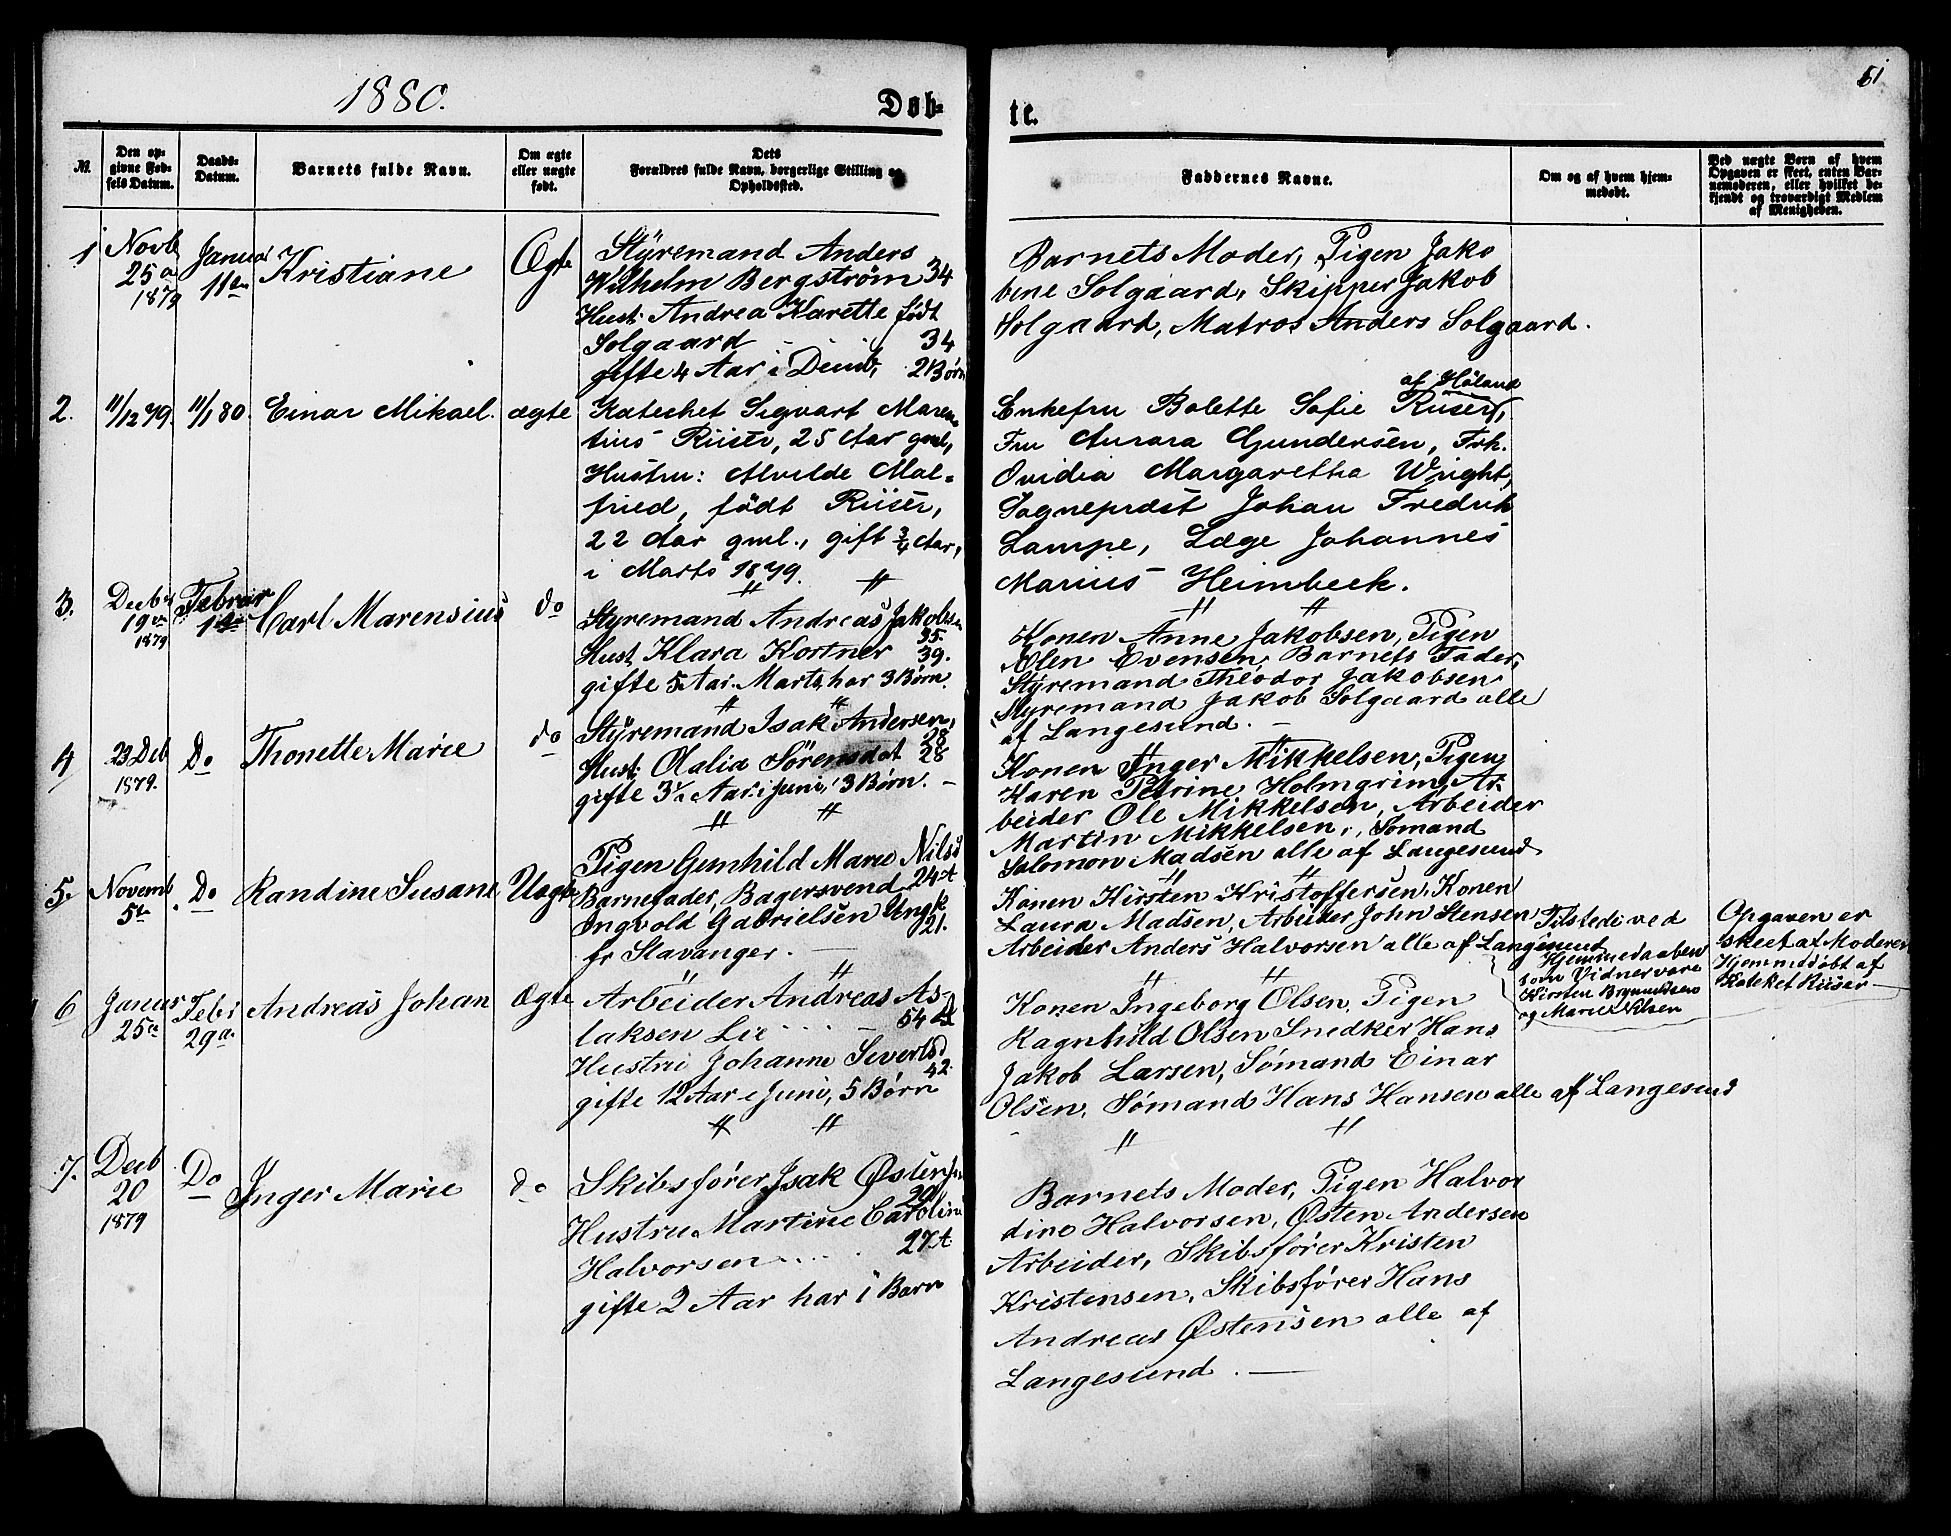 1880.
Døb-
te.
51
№
Den op-
givne Fød-
sels Datum.
Daabs-
Datum.
Barnets fulde Navn.
Om ægte
eller uægte
født.
Dets
Forældres fulde Navn, borgerlige Stilling og
Opholdssted.
Faddernes Navne.
Om og af hvem hjem-
medøbt.
Ved uægte Børn af hvem
Opgaven er skeet, enten Bar-
nemoderen, eller hvilket be-
kjendt og troværdigt Medlem
af Menigheden.
1
Novb
25
1879
Januar
11
Kristiane
Ægte
Styremand Anders
Wilhelm Bergström 34
Hust. Andrea Karette født
Solgaard 34
gifte 4 Aar i 2 Børn
Barnets Moder, Pigen Jako
bine Solgaard, Skipper Jakob
Solgaard, Matros Anders Solgaard.
2.
11/12 79.
11/1 80.
Einar Mikael.
ægte
Katechet Sigvart Maren-
tius Riiser, 25 Aar gml,
Hustru: Alvilde Mal-
fried, født Riiser,
22 Aar gml., gift 3/4 Aar,
i Marts 1879.
af Høland
Enkefru Bolette Sofie Riiser,
Fru Aurora Gundersen, Frk.
Ovidia Margaretha Wright,
Sogneprest Johan Fredrik
Lampe, Læge Johannes
Marius Heimbeck.
3.
Decbr
19
1879
Februar
1
Carl Marensius
do
" "
Styremand Andreas Jakobsen
35.
Hust. Klara Kortner 39.
gifte 5 Aar Marts, har 3 Børn.
" "
Konen Anne Jakobsen, Pigen
Elen Evensen, Barnets Fader,
Styremand Theodor Jakobsen
Styremand Jakob Solgaard alle
af Langesund. —
4
23 Deb
1879.
Do
Thonette Marie
do
" "
Styremand Isak Andersen,
28
Hust. Olalia Sörensdat 28
gifte 3½ Aar i Juni, 3 Børn. —
" "
Konen Inger Mikkelsen, Pigen
Karen Petrine Holmgrim, Ar-
beider Ole Mikkelsen, Arbeider
Martin Mikkelsen, Sømand
Salomon Madsen alle af Langesund
5.
Novemb
5
Do
Randine Susane
Uægte
" "
Pigen Gunhild Marie Nilsd
24 A
Barnefader, Bagersvend
Ingvold Gabrielsen Ungk
21.
fr Stavanger. —
" "
Konen Kirsten Kristoffersen, Konen
Laura Madsen, Arbeider John Stensen
Arbeider Anders Halvorsen alle af Langesund
Tilstede ved
Hjemmedaaben
som Vidner vare
Kirsten
og Marie Olsen
Opgaven er
skeet af Moderen
Hjemmedøbt af
Kateket Riiser —
6
Januar
25
Febr
29
Andreas Johan
Ægte
" "
Arbeider Andreas As-
laksen Lie . . . — 54 A
Hustru Johanne Sivertsd
42
gifte 12 Aar i Juni, 5 Børn
" "
Konen Ingeborg Olsen, Pigen
Ragnhild Olsen Snedker Hans
Jakob Larsen, Sømand Einar
Olsen, Sømand Hans Hansen alle af Langesund
7.
Decb
20
1879
Do
Inger Marie
do
" "
Skibsfører Isak Østensen
29
Hustru Martine Caroline
Halvorsen . . . 27 A
gifte 2 Aar har 1 Barn
" "
Barnets Moder, Pigen Halvor
dine Halvorsen, Østen Andersen
Arbeider, Skibsfører Kristen
Kristensen, Skibsfører Hans
Andreas Østensen alle af
Langesund. —